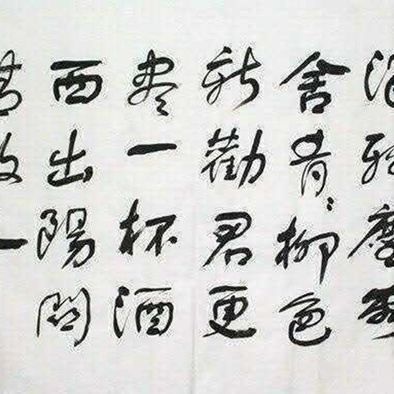 浥輕塵
舍青々柳色
新勸君更
盡一杯酒
西出陽關